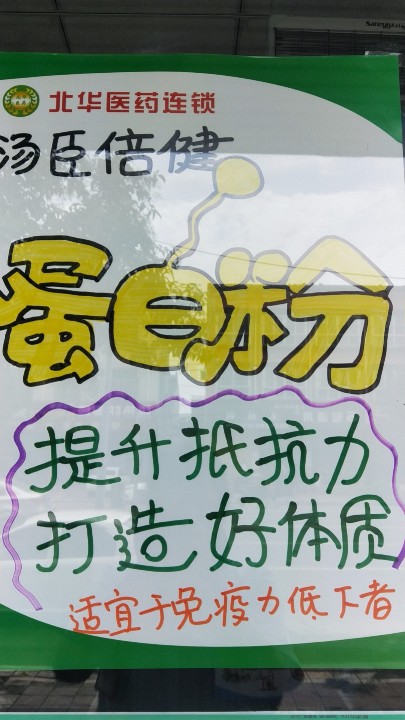 北华医药连锁
汤臣倍健
蛋白粉
提升抵抗力
打造好体质
适宜于免疫力低下者